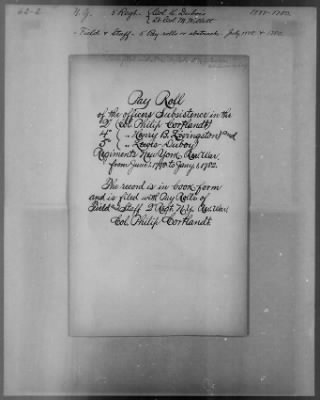 62-2 N.Y. 5 Regt. { Col. L. Dubois 1777-1782.
{ Lt. Col. M. Willett
- Field & Staff - 5 Pay rolls or abstracts - July 1778 & 1780.
Pay Roll
of the officers Subsistence in the
2d (Col. Philip Cortlandt)
4th ( " Henry B. Livingston) and
5th ( " Lewis Duboy)
Regiments New York Rev. War.
from June 1, 1780 to Jany. 1, 1782.
The record is in book form
and is filed with Pay Rolls of
Field & Staff 2d Regt. N.Y. Rev. War,
Col. Philip Cortlandt.